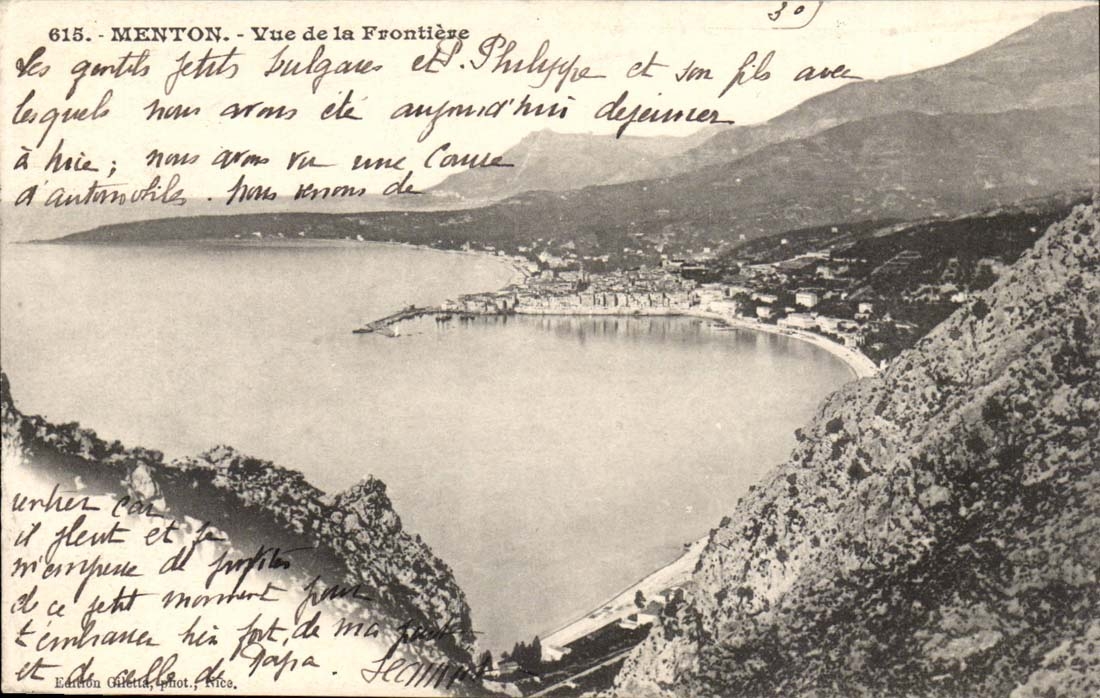 30)
615. - MENTON. - Vue de la Frontière
Les gentils petits bulgares et P. Philippe et son fils avec
lesquels nous avons été aujourd'hui dejeuner
à ; nous avons vu une Course
d'automobiles. nous venons de
rentrer car
il pleut et je
m'empresse de profiter
de ce petit moment pour
t'embrasser bien fort, de ma part
et de celle de Papa.
Edition Giletta, phot., Nice.